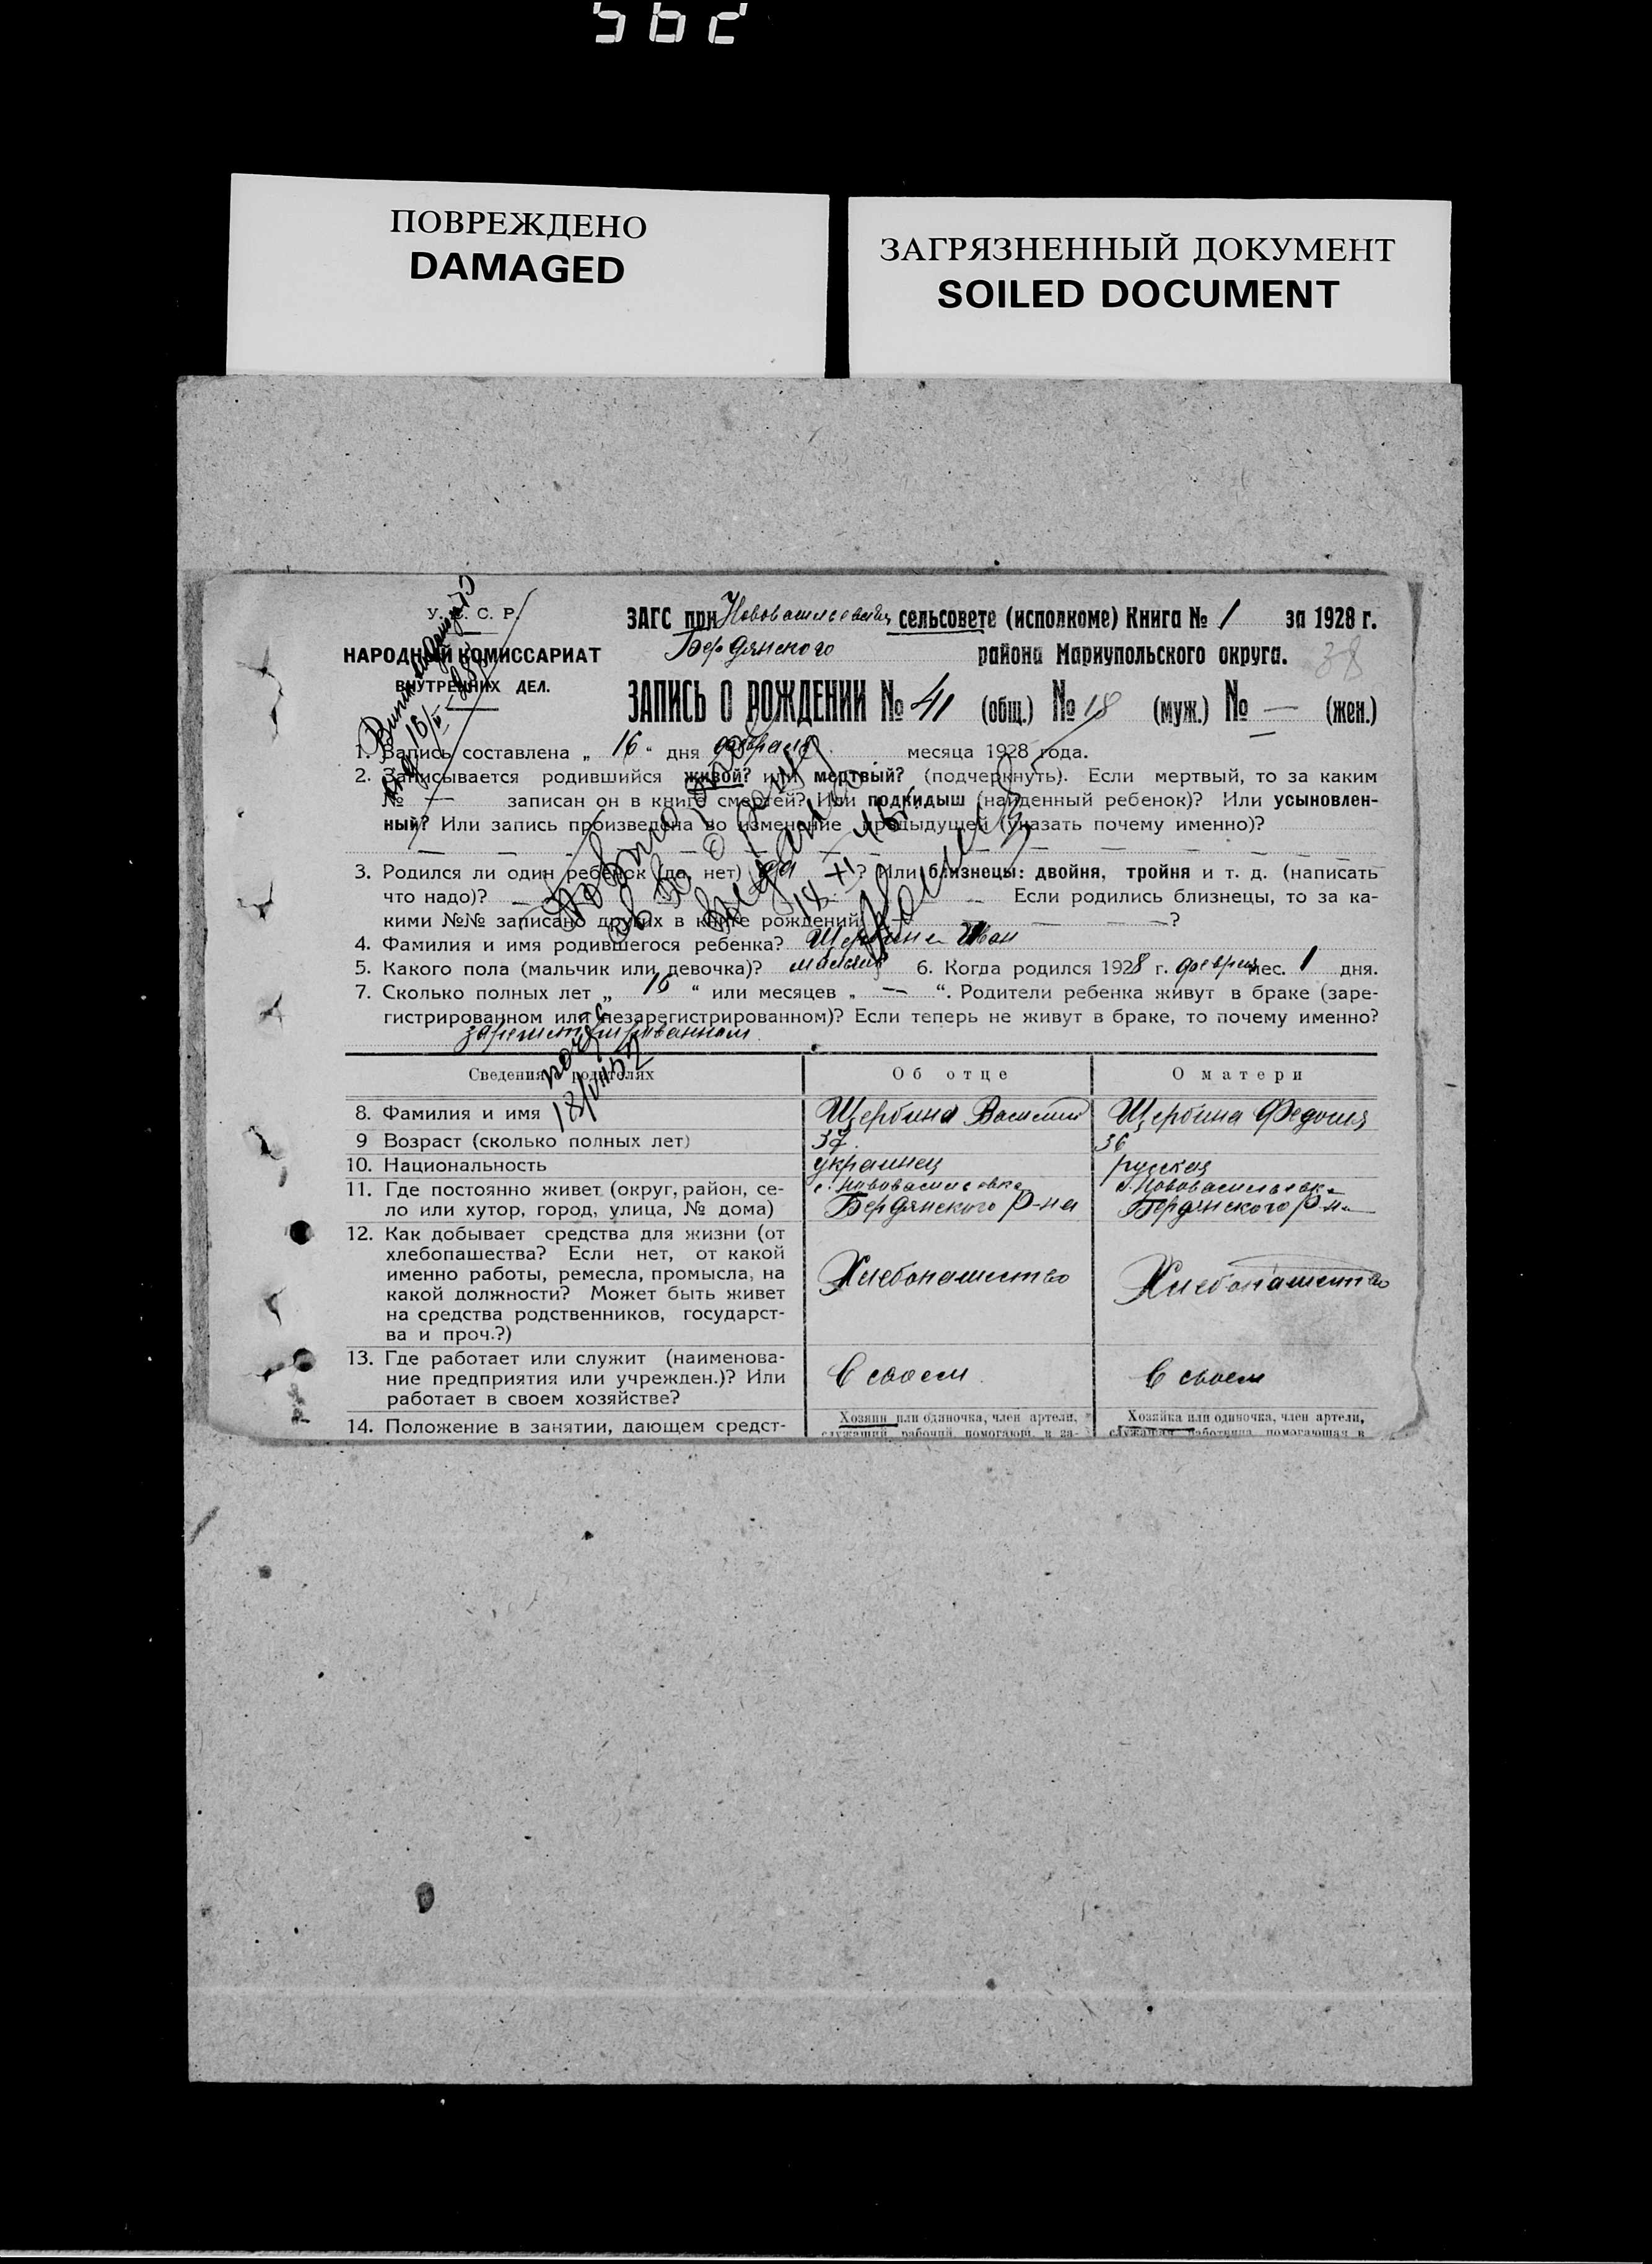 562
ПОВРЕЖДЕНО
DAMAGED
ЗАГРЯЗНЕННЫЙ ДОКУМЕНТ
SOILED DOCUMENT
У. С. С. Р.
НАРОДНЫЙ КОМИССАРИАТ
ВНУТРЕННИХ ДЕЛ.
ЗАГС при Нововасильевском сельсовете (исполкоме) Книга № 1 за 1928 г.
Бердянского района Мариупольского округа.
38
ЗАПИСЬ О РОЖДЕНИИ № 41 (общ.) № 18 (муж.) № — (жен.)
1. Запись составлена „ 16 “ дня февраля месяца 1928 года.
2. Записывается родившийся живой? или мертвый? (подчеркнуть). Если мертвый, то за каким
№ — записан он в книге смертей? Или подкидыш (найденный ребенок)? Или усыновлен-
ный? Или запись произведена во изменение предыдущей (указать почему именно)?
3. Родился ли один ребенок (да, нет) да ? Или близнецы: двойня, тройня и т. д. (написать
что надо)? — Если родились близнецы, то за ка-
кими №№ записано других в книге рождений — — — ?
4. Фамилия и имя родившегося ребенка? Щербина Иван
5. Какого пола (мальчик или девочка)? мальчик 6. Когда родился 1928 г. февраля мес. 1 дня.
7. Сколько полных лет „ 16 “ или месяцев „ — “. Родители ребенка живут в браке (заре-
гистрированном или незарегистрированном)? Если теперь не живут в браке, то почему именно?
зарегистрированном
18/VII 52
Сведения о родителях Об отце О матери
8. Фамилия и имя Щербина Василий Щербина Федосия
9 Возраст (сколько полных лет) 37. 36
10. Национальность украинец русская
11. Где постоянно живет (округ, район, се-
ло или хутор, город, улица, № дома)
с. Нововасильевка
Бердянского р-на
с. Нововасильевка
Бердянского р-на
12. Как добывает средства для жизни (от
хлебопашества? Если нет, от какой
именно работы, ремесла, промысла, на
какой должности? Может быть живет
на средства родственников, государст-
ва и проч.?)
Хлебопашество
Хлебопашество
13. Где работает или служит (наименова-
ние предприятия или учрежден.)? Или
работает в своем хозяйстве?
в своем
в своем
14. Положение в занятии, дающем средст-
Хозяин или одиночка, член артели,
служащий, рабочий, помогающ. в за-
Хозяйка или одиночка, член артели,
служащая, работница, помогающая в